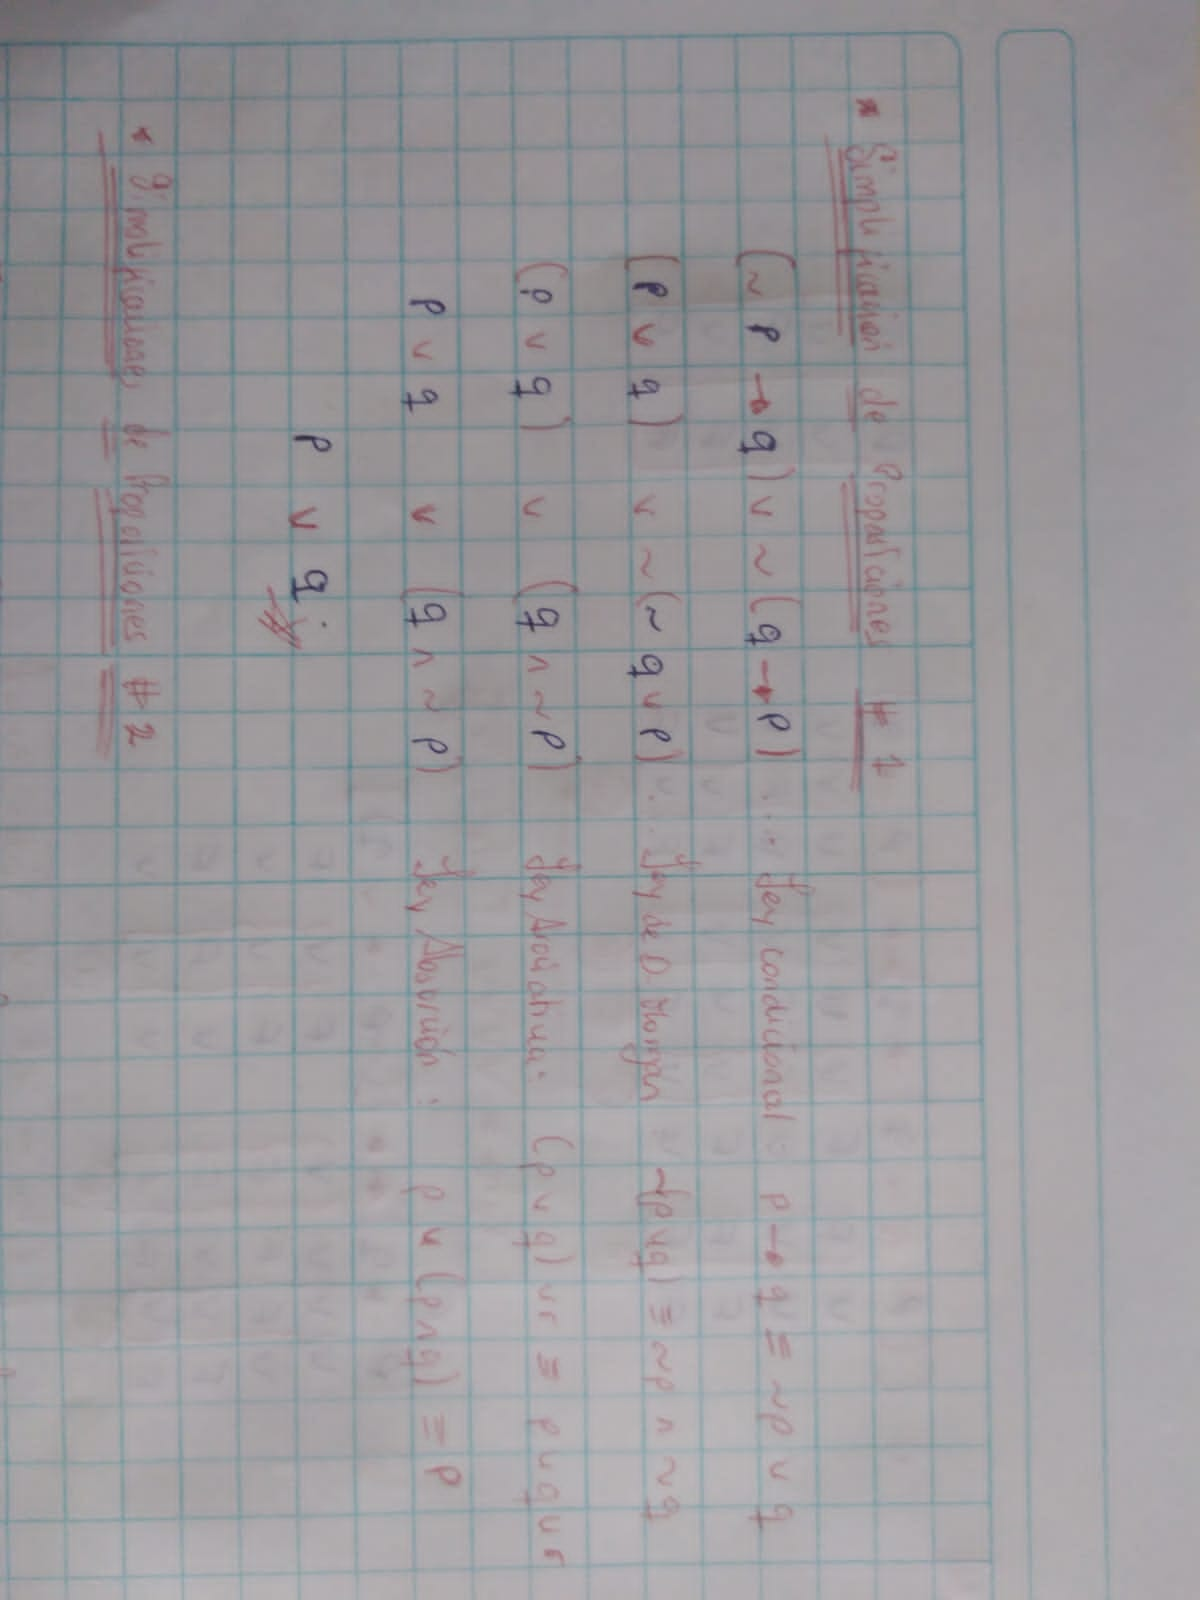 * Simplificación de Proposiciones # 1
(~ p → q) v ~ (q → p) ... Ley condicional = p → q ≡ ~p v q
(p v q) v ~ (~ q v p) ... Ley de D. Morgan ~(p v q) ≡ ~p ∧ ~q
(p v q) v (q ∧ ~ p) Ley Asociativa: (p v q) v r ≡ p v q v r
p v q v (q ∧ ~ p) Ley Absorción : p v (p ∧ q) ≡ p
p v q
* Simplificaciones de Proposiciones # 2